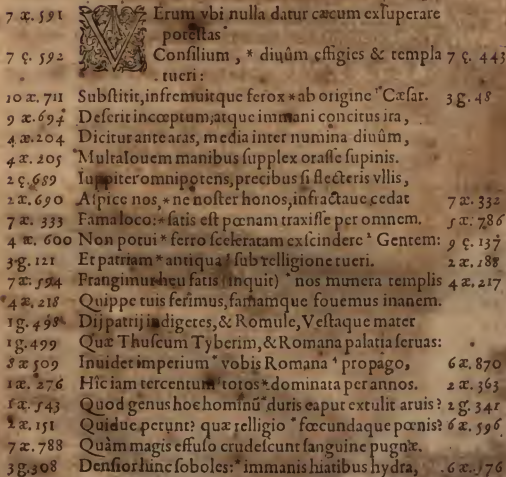 7 æ. 591 VErum vbi nulla datur cæcum exſuperare
poteſtas
7 ę. 592 Conſilium, * diuûm effigies & templa 7 ę. 443
tueri:
10 æ. 711 Subſtitit, infremuitque ferox * ab origine ¹ Cæſar. 3 g. 48
9 æ. 694 Deſerit inceptum, atque immani concitus ira,
4 æ. 204 Dicitur ante aras, media inter numina diuûm,
4 æ. 205 Multa Iouem manibus ſupplex oraſſe ſupinis.
2 ę. 689 Iuppiter omnipotens, precibus ſi flecteris vllis,
2 æ. 690 Aſpice nos, * ne noſter honos, infractaue cedat 7 æ. 332
7 æ. 333 Fama loco: * ſatis eſt pœnam traxiſſe per omnem. 5 æ. 786
4 æ. 600 Non potui * ferro ſceleratam exſcindere ² Gentem: 9 ę. 137
3 g. 121 Et patriam * antiqua ³ ſub relligione tueri. 2 æ. 188
7 æ. 594 Frangimur heu fatis (inquit) * nos munera templis 4 æ. 217
4 æ. 218 Quippe tuis ferimus, famamque fouemus inanem.
1 g. 498 Dij patrij indigetes, & Romule, Veſtaque mater
1 g. 499 Quæ Thuſcum Tyberim, & Romana palatia ſeruas:
8 æ 509 Inuidet imperium * vobis Romana ⁴ propago, 6 æ. 870
1 æ. 276 Hîc iam tercentum totos * dominata per annos. 2 æ. 363
1 æ. 543 Quod genus hoc hominũ * duris caput extulit aruis? 2 g. 341
2 æ. 151 Quidue petunt? quæ relligio * fœcundaque pœnis? 6 æ. 596
7 æ. 788 Quàm magis effuſo crudeſcunt ſanguine pugnæ.
3 g. 308 Denſior hinc ſoboles: * immanis hiatibus hydra, 6 æ. 576